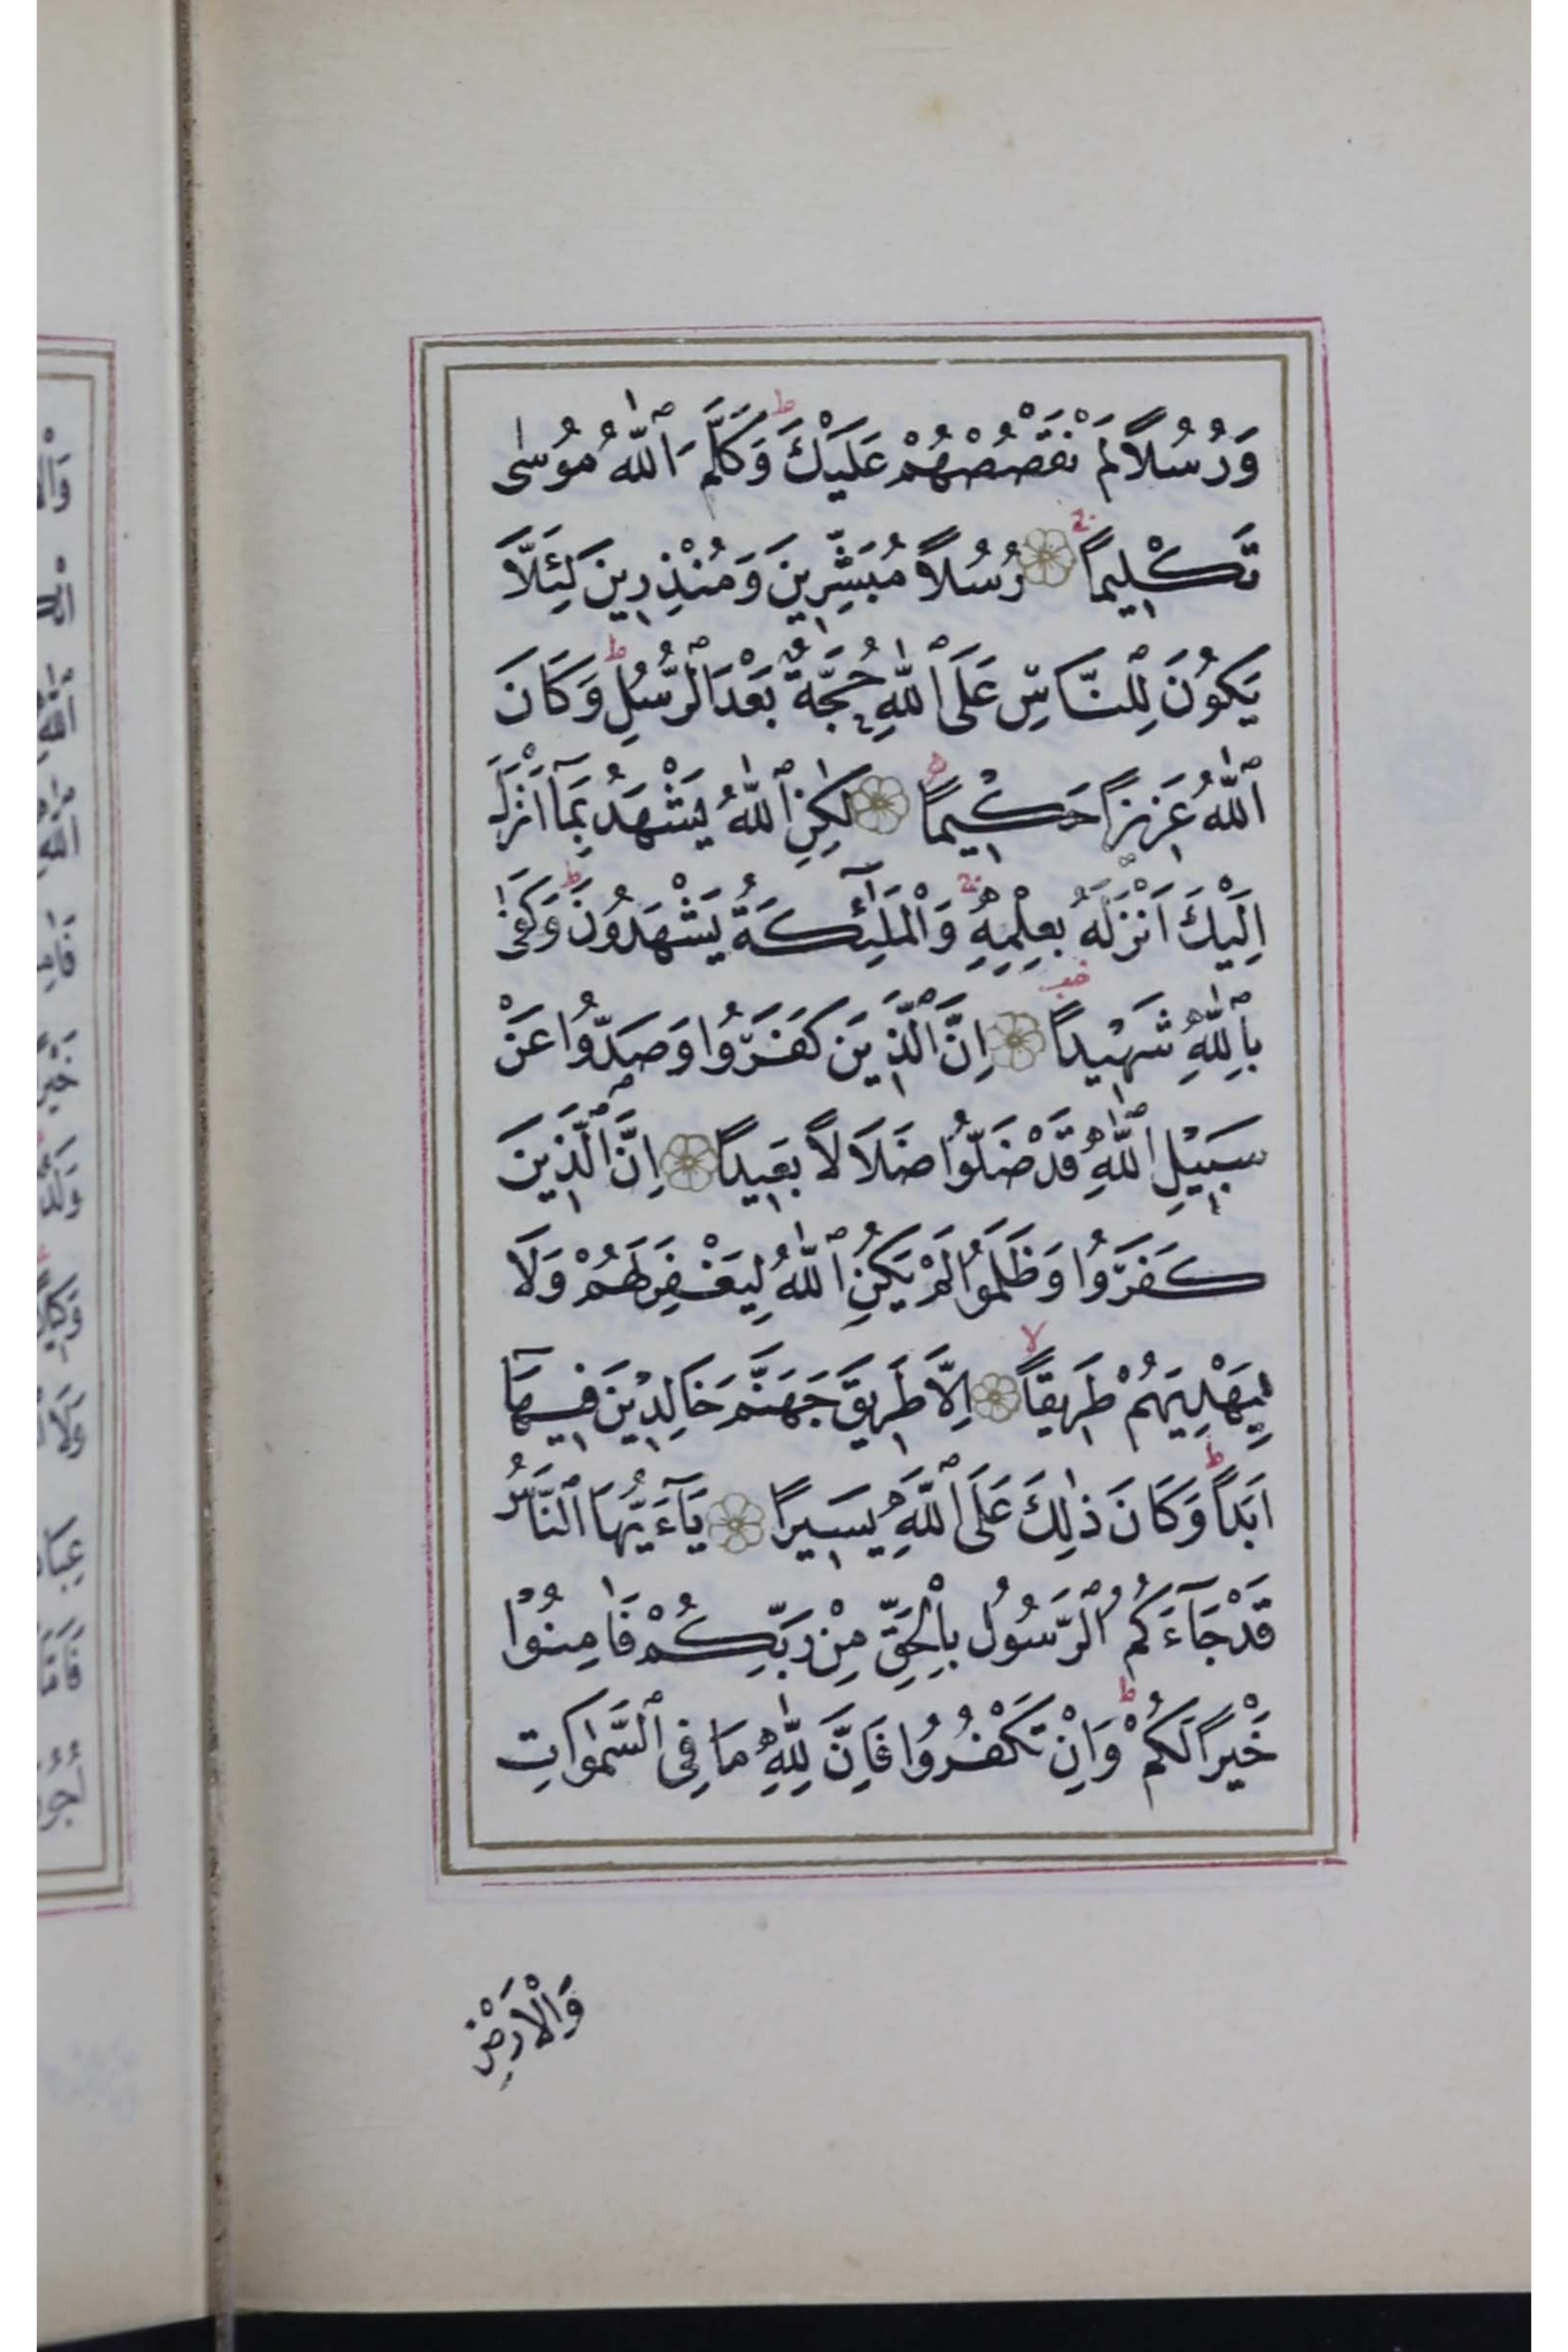 وَرُسُلًا لَمْ نَقْصُصْهُمْ عَلَيْكَ ط وَكَلَّمَ ٱللّٰهُ مُوسٰى
تَكْلِيمًا ۝ رُسُلًا مُبَشِّرِينَ وَمُنْذِرِينَ لِئَلَّا
يَكُونَ لِلنَّاسِ عَلَى ٱللّٰهِ حُجَّةٌ بَعْدَ ٱلرُّسُلِ ط وَكَانَ
ٱللّٰهُ عَزِيزًا حَكِيمًا ۝ لٰكِنِ ٱللّٰهُ يَشْهَدُ بِمَآ اَنْزَلَ
اِلَيْكَ اَنْزَلَهُ بِعِلْمِهِ ج وَالْمَلٰٓئِكَةُ يَشْهَدُونَ ط وَكَفٰى
بِٱللّٰهِ شَهِيدًا ۝ اِنَّ ٱلَّذِينَ كَفَرُوا وَصَدُّوا عَنْ
سَبِيلِ ٱللّٰهِ قَدْ ضَلُّوا ضَلَالًا بَعِيدًا ۝ اِنَّ ٱلَّذِينَ
كَفَرُوا وَظَلَمُوا لَمْ يَكُنِ ٱللّٰهُ لِيَغْفِرَ لَهُمْ وَلَا
لِيَهْدِيَهُمْ طَرِيقًا لا ۝ اِلَّا طَرِيقَ جَهَنَّمَ خَالِدِينَ فِيهَآ
اَبَدًا ط وَكَانَ ذٰلِكَ عَلَى ٱللّٰهِ يَسِيرًا ۝ يَآءَيُّهَا ٱلنَّاسُ
قَدْ جَآءَكُمُ ٱلرَّسُولُ بِالْحَقِّ مِنْ رَبِّكُمْ فَاٰمِنُوْا
خَيْرًا لَكُمْ ط وَاِنْ تَكْفُرُوا فَاِنَّ لِلّٰهِ مَا فِى ٱلسَّمٰوَاتِ
وَالْاَرْضِ